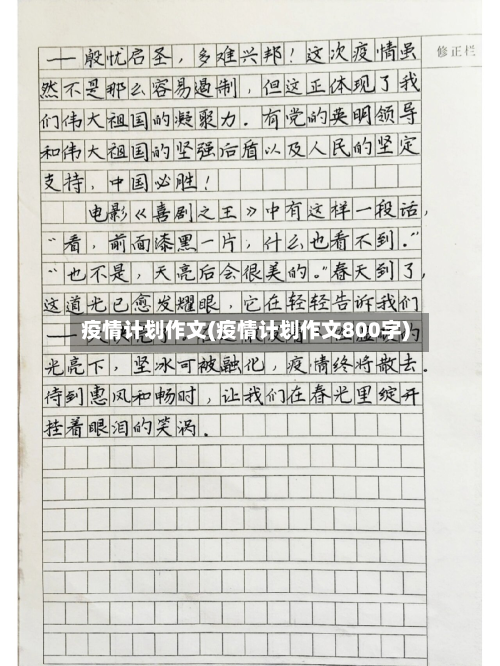 修正栏
——殷忧启圣，多难兴邦！这次疫情虽
然不是那么容易遏制，但这正体现了我
们伟大祖国的凝聚力．有党的英明领导
和伟大祖国的坚强后盾以及人民的坚定
支持，中国必胜！
电影《喜剧之王》中有这样一段话，
“看，前面漆黑一片，什么也看不到．”
“也不是，天亮后会很美的．”春天到了，
这道光已愈发耀眼，它在轻轻告诉我们
疫情计划作文(疫情计划作文800字)
光亮下，坚冰可被融化，疫情终将散去．
侍到惠风和畅时，让我们在春光里绽开
挂着眼泪的笑涡．